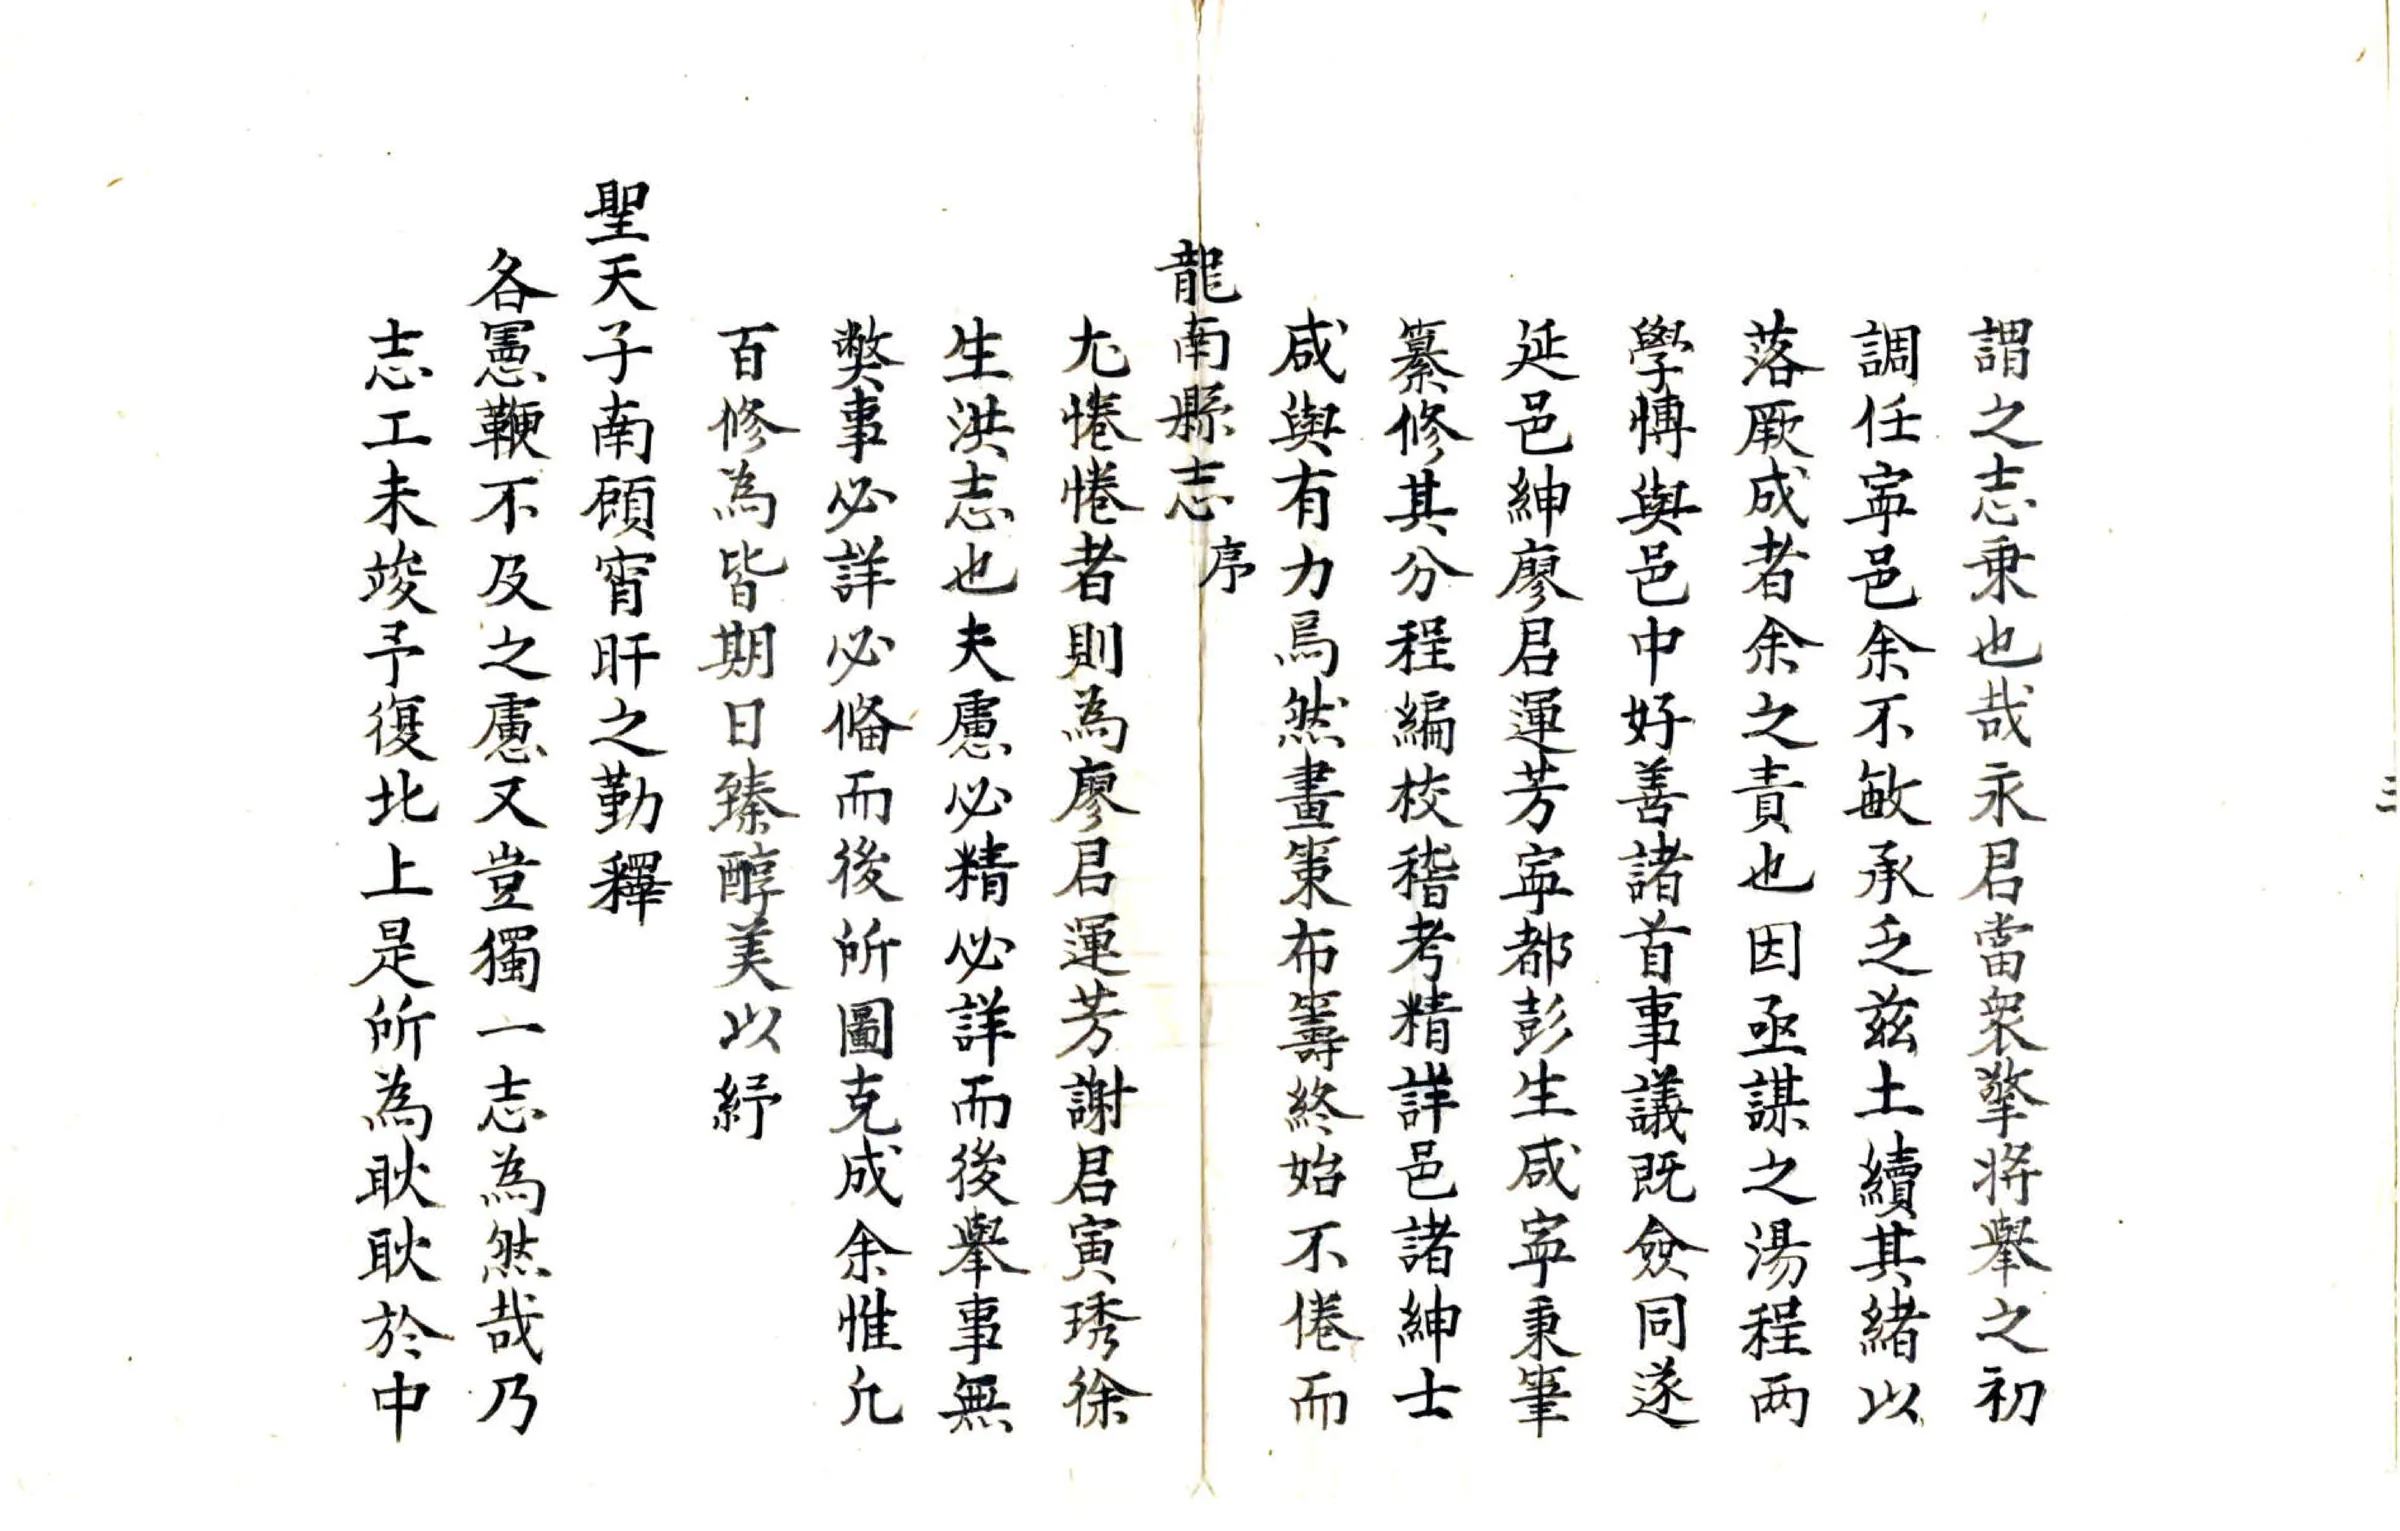 謂之志乗也哉永君當衆擎將舉之初
調任寕邑余不敏承乏兹土續其緒以
落厥成者余之責也因亟謀之湯程两
學博與邑中好善諸首事議既僉同遂
延邑紳廖君運芳寕都彭生咸寕秉筆
纂修其分程編校稽考精詳邑諸紳士
咸與有力焉然畫策布籌終始不倦而
龍南縣志
序
尤惓惓者則為廖君運芳謝君寅琇徐
生洪志也夫慮必精必詳而後舉事無
弊事必詳必俻而後所圖克成余惟凢
百修為皆期日臻醇美以紓
聖天子南顧宵旰之勤釋
各憲鞭不及之慮又豈獨一志為然哉乃
志工未竣予復北上是所為耿耿於中
三